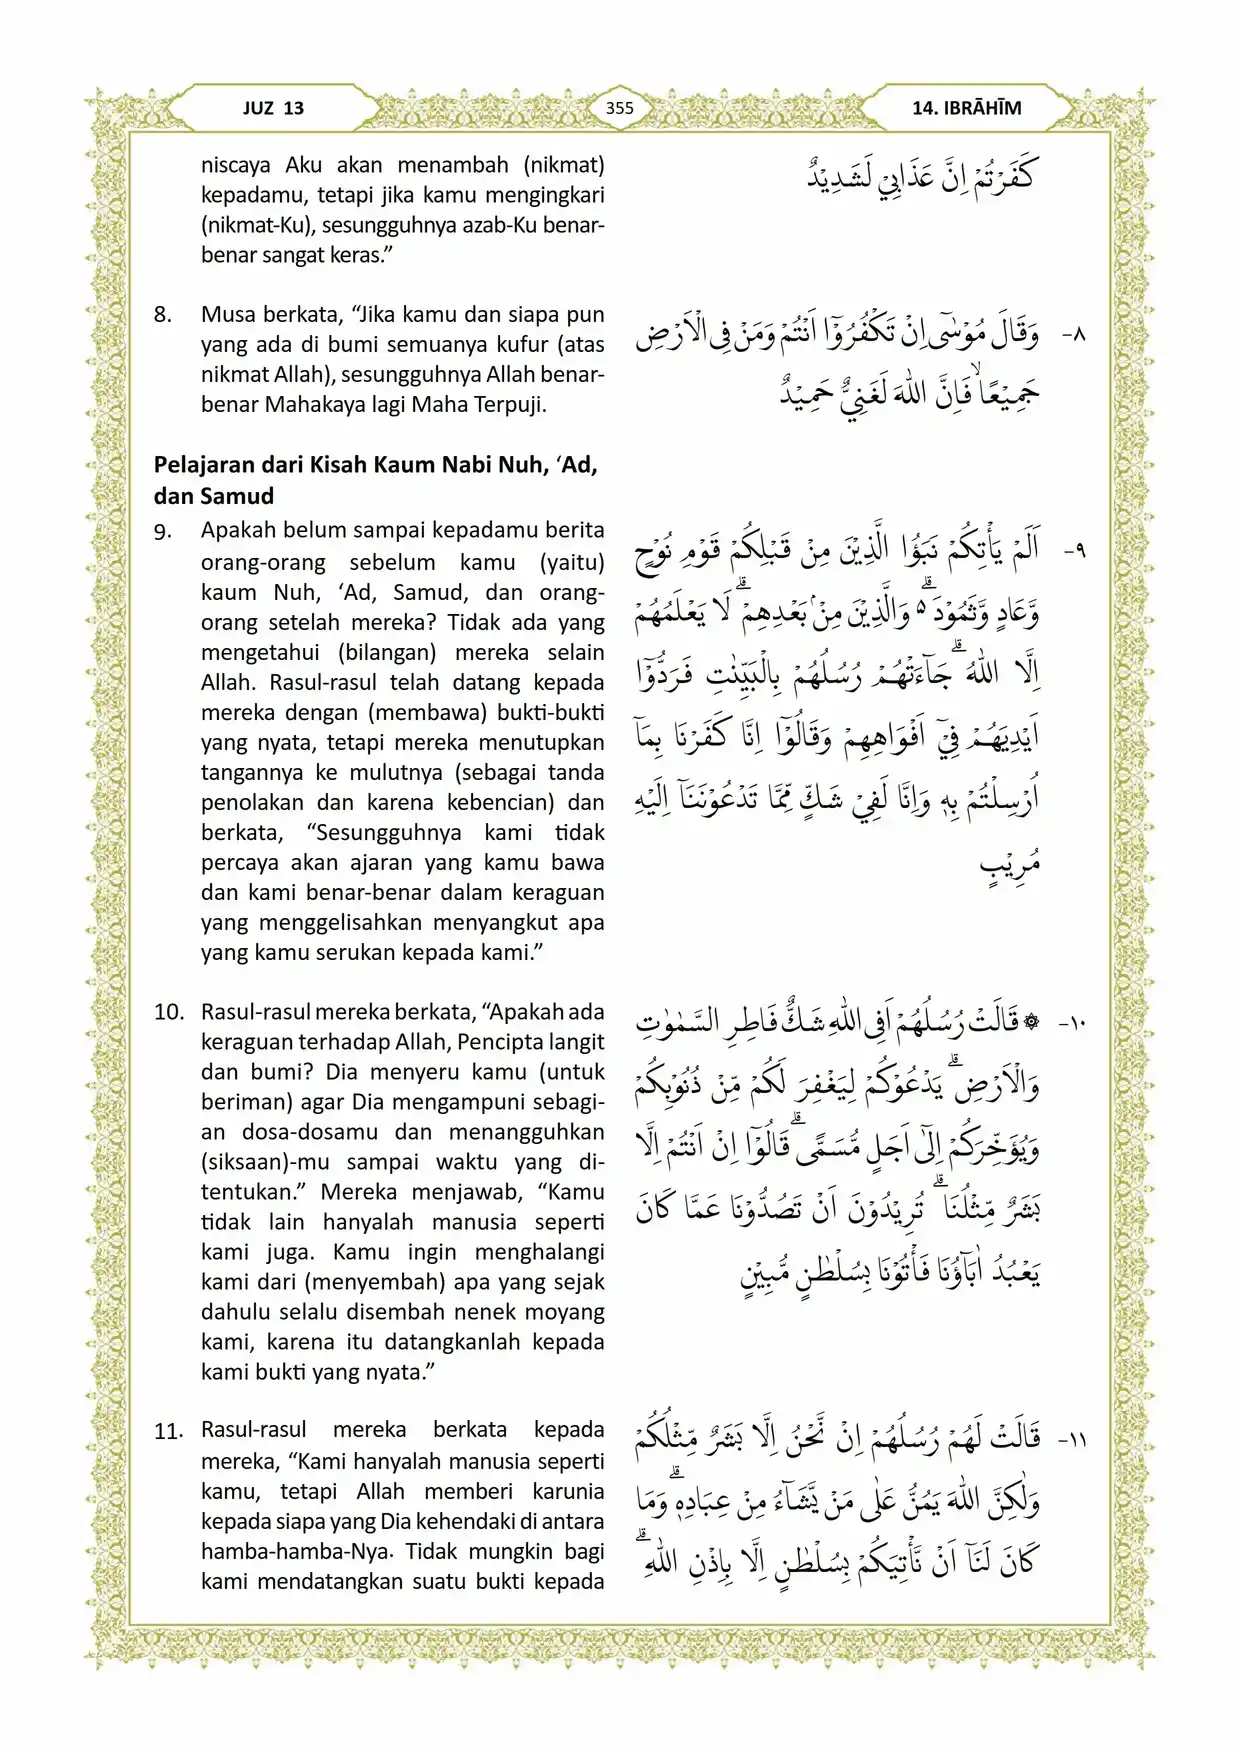 JUZ 13
355
14. IBRĀHĪM
niscaya Aku akan menambah (nikmat)
kepadamu, tetapi jika kamu mengingkari
(nikmat-Ku), sesungguhnya azab-Ku benar-
benar sangat keras.”
كَفَرْتُمْ اِنَّ عَذَابِيْ لَشَدِيْدٌ
8. Musa berkata, “Jika kamu dan siapa pun
yang ada di bumi semuanya kufur (atas
nikmat Allah), sesungguhnya Allah benar-
benar Mahakaya lagi Maha Terpuji.
٨- وَقَالَ مُوْسٰٓى اِنْ تَكْفُرُوْٓا اَنْتُمْ وَمَنْ فِى الْاَرْضِ
جَمِيْعًا ۙفَاِنَّ اللّٰهَ لَغَنِيٌّ حَمِيْدٌ
Pelajaran dari Kisah Kaum Nabi Nuh, ‘Ad,
dan Samud
9. Apakah belum sampai kepadamu berita
orang-orang sebelum kamu (yaitu)
kaum Nuh, ‘Ad, Samud, dan orang-
orang setelah mereka? Tidak ada yang
mengetahui (bilangan) mereka selain
Allah. Rasul-rasul telah datang kepada
mereka dengan (membawa) bukti-bukti
yang nyata, tetapi mereka menutupkan
tangannya ke mulutnya (sebagai tanda
penolakan dan karena kebencian) dan
berkata, “Sesungguhnya kami tidak
percaya akan ajaran yang kamu bawa
dan kami benar-benar dalam keraguan
yang menggelisahkan menyangkut apa
yang kamu serukan kepada kami.”
٩- اَلَمْ يَأْتِكُمْ نَبَؤُا الَّذِيْنَ مِنْ قَبْلِكُمْ قَوْمِ نُوْحٍ
وَّعَادٍ وَّثَمُوْدَ ۗ ە وَالَّذِيْنَ مِنْۢ بَعْدِهِمْ ۗ لَا يَعْلَمُهُمْ
اِلَّا اللّٰهُ ۗ جَاۤءَتْهُمْ رُسُلُهُمْ بِالْبَيِّنٰتِ فَرَدُّوْٓا
اَيْدِيَهُمْ فِيْٓ اَفْوَاهِهِمْ وَقَالُوْٓا اِنَّا كَفَرْنَا بِمَآ
اُرْسِلْتُمْ بِهٖ وَاِنَّا لَفِيْ شَكٍّ مِّمَّا تَدْعُوْنَنَآ اِلَيْهِ
مُرِيْبٍ
10. Rasul-rasul mereka berkata, “Apakah ada
keraguan terhadap Allah, Pencipta langit
dan bumi? Dia menyeru kamu (untuk
beriman) agar Dia mengampuni sebagi-
an dosa-dosamu dan menangguhkan
(siksaan)-mu sampai waktu yang di-
tentukan.” Mereka menjawab, “Kamu
tidak lain hanyalah manusia seperti
kami juga. Kamu ingin menghalangi
kami dari (menyembah) apa yang sejak
dahulu selalu disembah nenek moyang
kami, karena itu datangkanlah kepada
kami bukti yang nyata.”
١٠- ۞ قَالَتْ رُسُلُهُمْ اَفِى اللّٰهِ شَكٌّ فَاطِرِ السَّمٰوٰتِ
وَالْاَرْضِ ۗ يَدْعُوْكُمْ لِيَغْفِرَ لَكُمْ مِّنْ ذُنُوْبِكُمْ
وَيُؤَخِّرَكُمْ اِلٰٓى اَجَلٍ مُّسَمًّى ۗ قَالُوْٓا اِنْ اَنْتُمْ اِلَّا
بَشَرٌ مِّثْلُنَا ۗ تُرِيْدُوْنَ اَنْ تَصُدُّوْنَا عَمَّا كَانَ
يَعْبُدُ اٰبَاۤؤُنَا فَأْتُوْنَا بِسُلْطٰنٍ مُّبِيْنٍ
11. Rasul-rasul mereka berkata kepada
mereka, “Kami hanyalah manusia seperti
kamu, tetapi Allah memberi karunia
kepada siapa yang Dia kehendaki di antara
hamba-hamba-Nya. Tidak mungkin bagi
kami mendatangkan suatu bukti kepada
١١- قَالَتْ لَهُمْ رُسُلُهُمْ اِنْ نَّحْنُ اِلَّا بَشَرٌ مِّثْلُكُمْ
وَلٰكِنَّ اللّٰهَ يَمُنُّ عَلٰى مَنْ يَّشَاۤءُ مِنْ عِبَادِهٖ ۗ وَمَا
كَانَ لَنَآ اَنْ نَّأْتِيَكُمْ بِسُلْطٰنٍ اِلَّا بِاِذْنِ اللّٰهِ ۗ